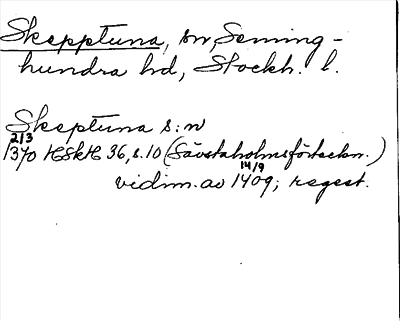 Skepptuna, sn, Seming-
hundra hd, Stockh. l.
Skeptuna s:n
2/3
1370 HSkH 36, s. 10 (Sävstaholmsförteckn.)
14/9
vidim. av 1409; regest.